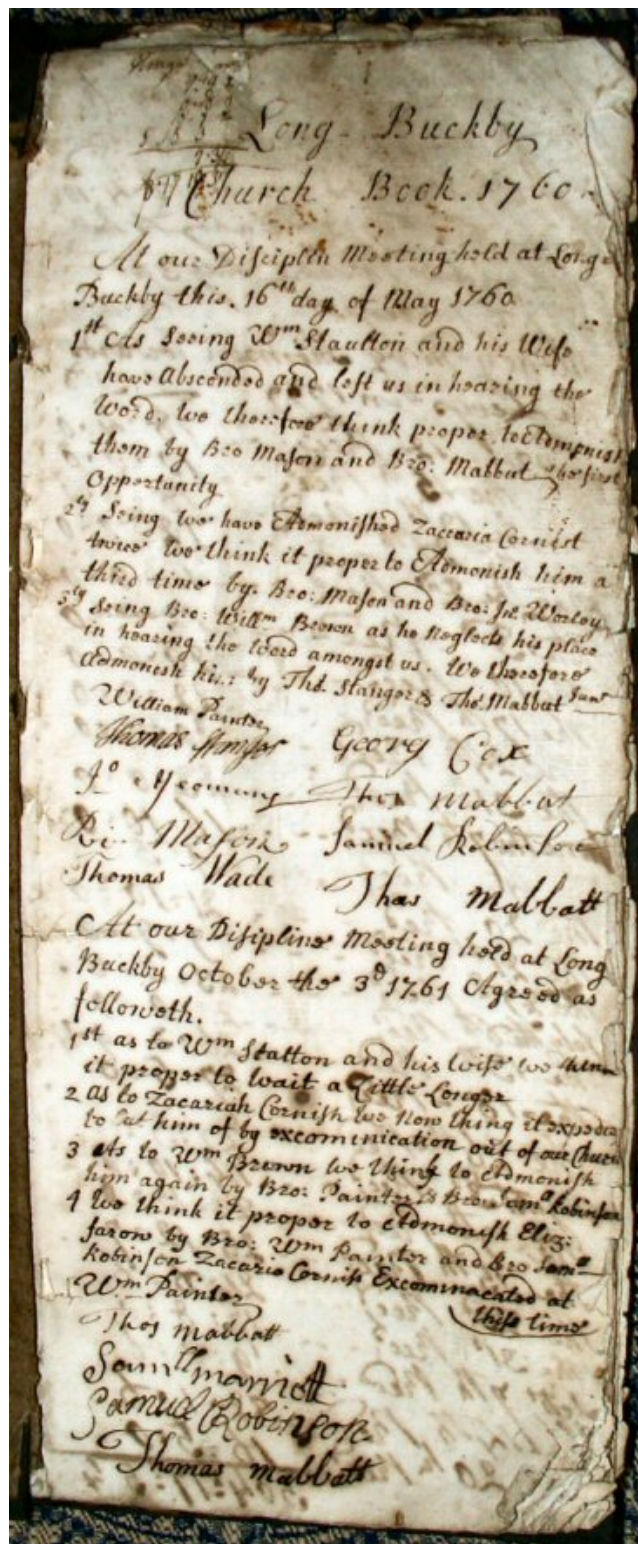 Long Buckby
Church Book. 1760
At our Disciplin Meeting held at Long
Buckby this. 16th day of May 1760
1st As Seeing Wm Staulton and his Wife
have Absconded and left us in hearing the
Word. we therefore think proper to Admonish
them by Bro Mason and Bro: Mabbut the first
Opportunity
2ly Seing we have Admonished Zaccaria Cornist
twice we think it proper to Admonish him a
third time by. Bro: Mason and Bro: Jn. Worley
3ly Seing Bro: Willm Brown as he Neglects his place
in hearing the Word amongst us. We therefore
Admonish him by Tho. Stanger & Tho. Mabbut
William Painter
Thomas Stanger Georg Cox
Jo Yeomans Thos Mabbat
Ri. Mason Samuel Robinson
Thomas Wade Thos Mabbatt
At our Disipline Meeting held at Long
Buckby October the 3d 1761 Agreed as
followeth.
1st as to Wm Statton and his wife we think
it proper to wait a Little Longer
2 as to Zacariah Cornish we Now thing it
to him of by excomunication out of our Church
3 As to Wm Brown we think to Admonish
him again by Bro: Painter & Bro Saml Robinson
4 We think it proper to Admonish Eliz:
farow by Bro: Wm Painter and Bro Samll
Robinson Zacaria Cornish Excominacated at
this time
Wm Painter
Thos Mabbatt
Samll Marriott
Samuel Robinson
Thomas Mabbatt